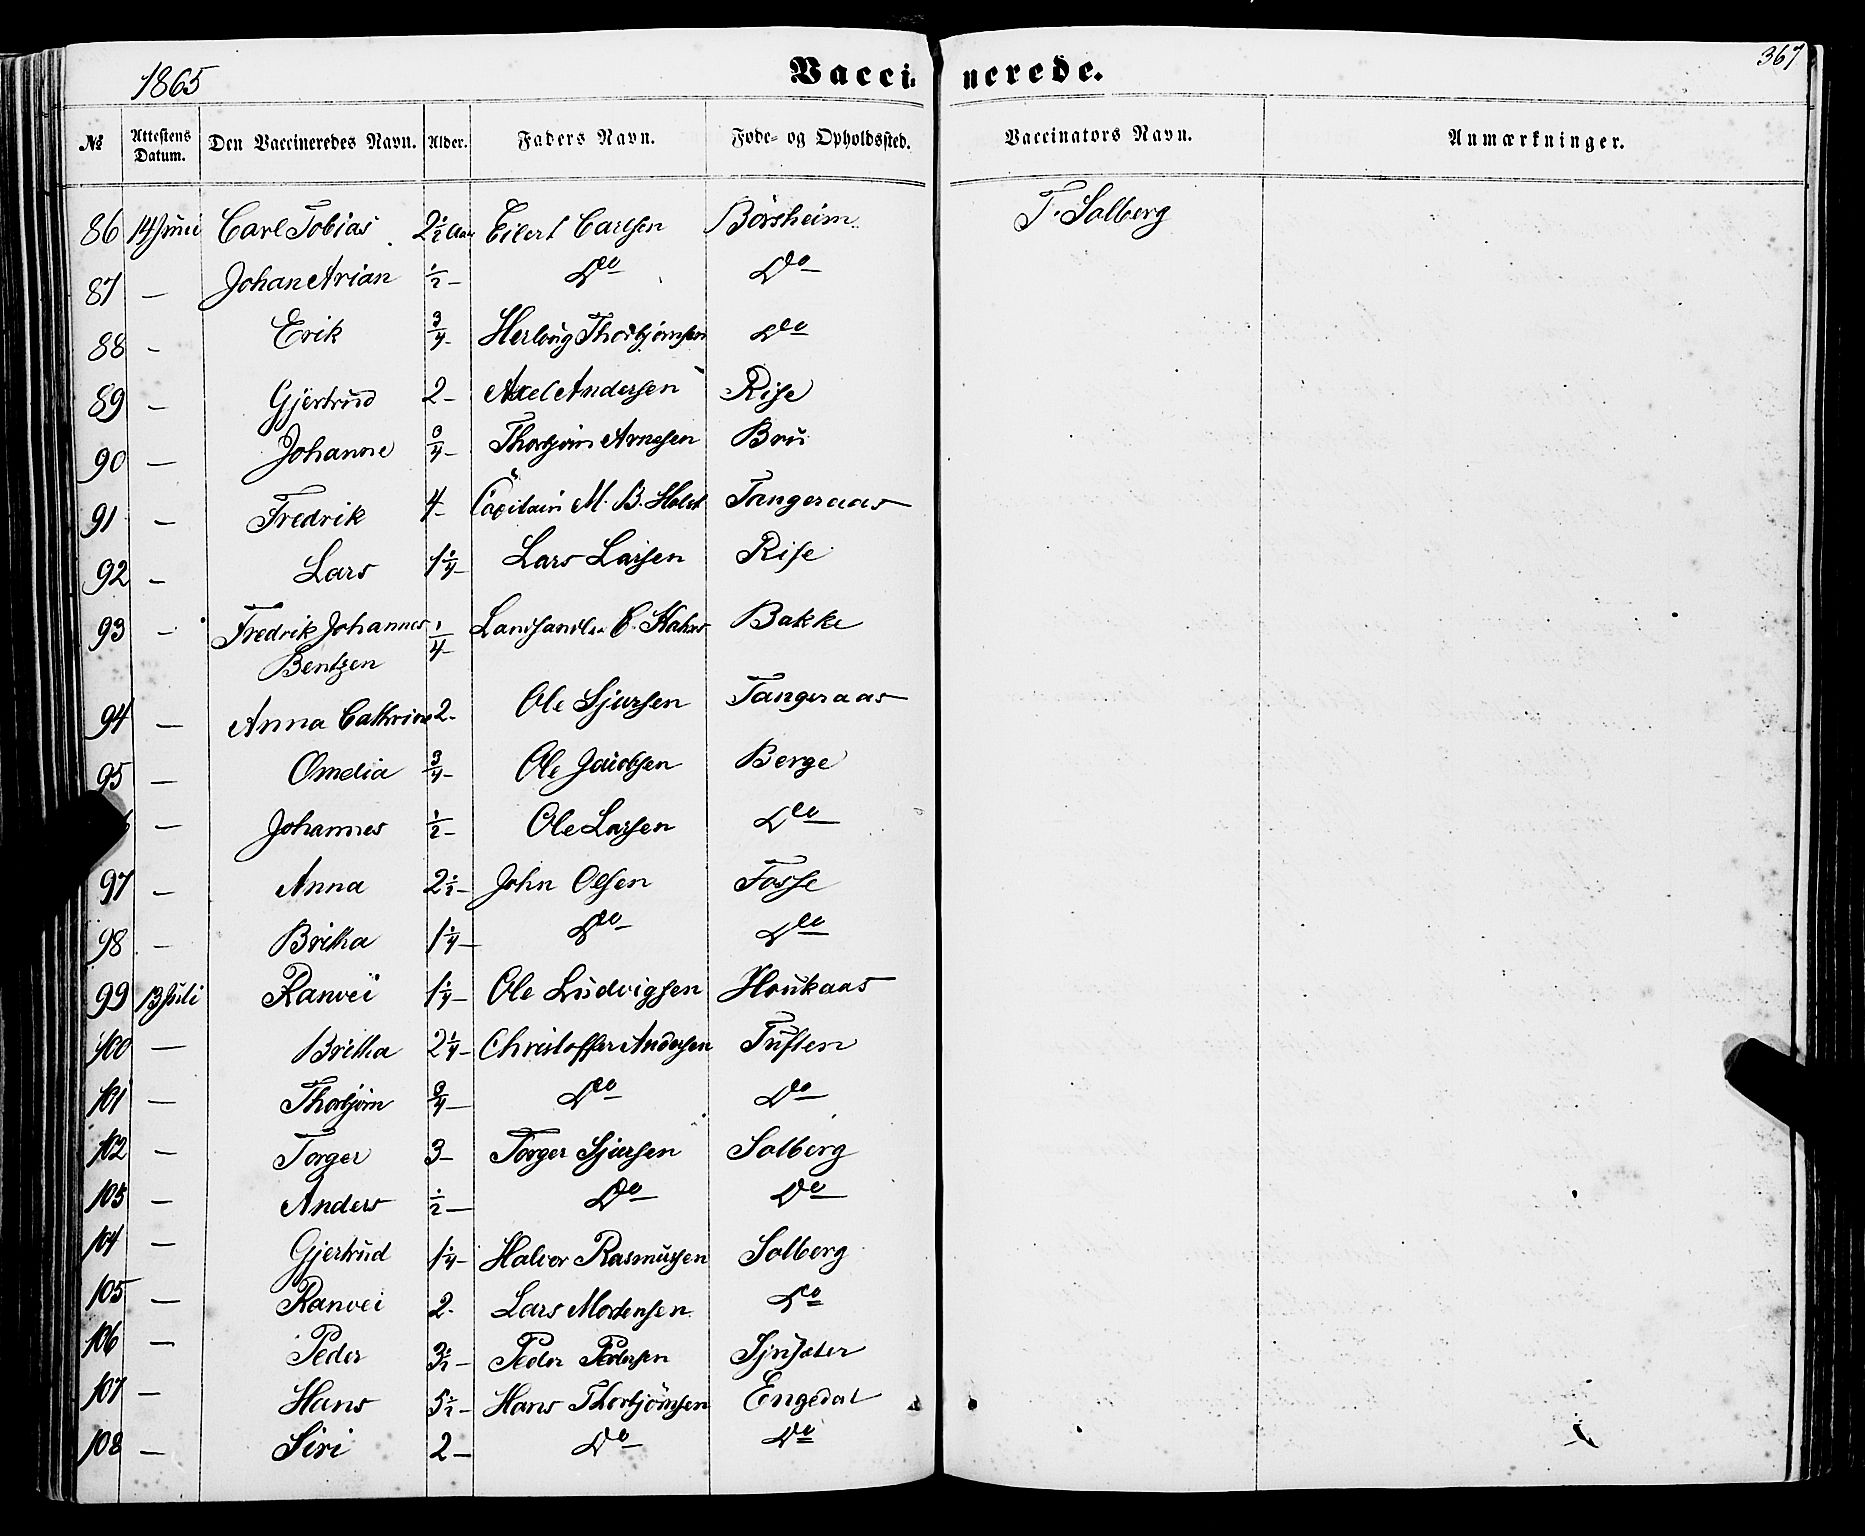 1865 Vaccinerede. 367
№ Attestens Datum. Den Vaccineredes Navn. Alder. Faders Navn. Føde- og Opholdssted. Vaccinators Navn. Anmærkninger.
86 14 Juni Carl Tobias 2½ Aar Eilert Carlsen Börsheim T. Solberg
87 — Johan Arian ½ – Do Do
88 – Erik ¾ – Herloug Thorbjørnsen Do
89 – Gjertrud 2 – Axel Andersen Rise
90 – Johanne ¾ – Thorbjørn Arnesen Bru
91 – Fredrik 4 – Capitain M. B. Holst Tangeraas
92 – Lars 1¼ – Lars Larsen Rise
93 – Fredrik Johannes ¼ – Landhandler C. Bakke
Bentzen
94 – Anna Cathrine 2 – Ole Sjursen Tangeraas
95 – Omelia ¾ – Ole Jacobsen Berge
– Johannes ½ – Ole Larsen Do
97 – Anna 2½ – John Olsen Fosse
98 – Britha 1¼ – Do Do
99 13 Juli Ranvei 1¼ – Ole Ludvigsen Houkaas
100 — Britha 2¼ – Christoffer Andersen Tuften
101 — Thorbjørn ¾ — Do Do
102 — Torger 3 – Torger Sjursen Solberg
103 — Anders ½ — Do Do
104 — Gjertrud 1¼ – Halvor Rasmussen Solberg
105 — Ranvei 2 - Lars Mortensen Do
106 — Peder 3½ – Peder Pedersen
107 — Hans 5½ – Hans Thorbjörnsen Engedal
108 — Siri 2 — Do Do